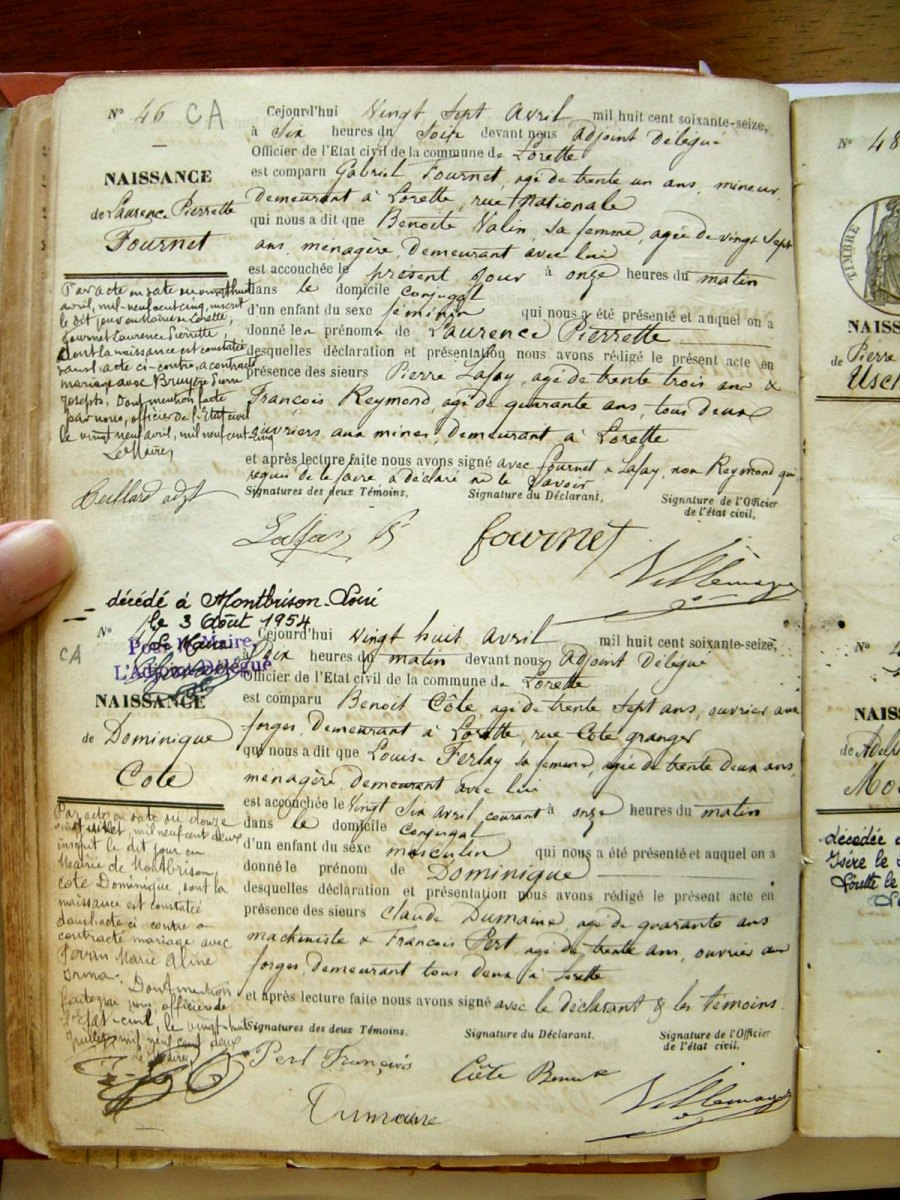 N° 46 CA
NAISSANCE
de Laurence Pierrette
Fournet
Cejourd'hui Vingt Sept Avril mil huit cent soixante-seize,
à Six heures du Soir devant nous Adjoint Délégué
Officier de l'Etat civil de la commune de Lorette
est comparu Gabriel Fournet, agé de trente un ans, mineur
demeurant à Lorette, rue Nationale
qui nous a dit que Benoite Valin, sa femme, agée de vingt sept
ans, ménagère, demeurant avec lui
est accouchée le présent jour à onze heures du matin
dans le domicile conjugal
d'un enfant du sexe féminin qui nous a été présenté et auquel on a
donné les prénoms de Laurence Pierrette
desquelles déclaration et présentation nous avons rédigé le présent acte en
présence des sieurs Pierre Lafay, agé de trente trois ans &
François Reymond, agé de quarante ans, tous deux
ouvriers aux mines, demeurant à Lorette
et après lecture faite nous avons signé avec Fournet & Lafay, non Reymond qui
requis de le faire, a déclaré ne le savoir
Signatures des deux Témoins. Signature du Déclarant, Signature de l'Officier
de l'état civil.
Par acte en date du vingt huit
avril, mil-neuf cent cinq, inscrit
le dit jour en Mairie de Lorette,
Fournet Laurence Pierrette
dont la naissance est constatée
dans l'acte ci-contre, a contracté
mariage avec Bruyère Pierre
Joseph. Dont mention faite
par nous, officier de l'Etat civil
le vingt neuf avril, mil neuf cent cinq
Le Maire,
Lafay P.
fournet
Villemagne
décédé à Montbrison-Loire
le 3 Août 1954
Le Maire
Pour le Maire
L'Adjoint Délégué
N°
CA
NAISSANCE
de Dominique
Cote
Cejourd'hui Vingt huit Avril mil huit cent soixante-seize,
à dix heures du matin devant nous Adjoint Délégué
Officier de l'Etat civil de la commune de Lorette
est comparu Benoit Côte agé de trente Sept ans, ouvrier aux
forges, demeurant à Lorette, rue Cote granger
qui nous a dit que Louise Ferlay, sa femme, agée de trente deux ans,
ménagère, demeurant avec lui
est accouchée le Vingt Six avril courant à onze heures du matin
dans le domicile conjugal
d'un enfant du sexe masculin qui nous a été présenté et auquel on a
donné le prénom de Dominique
desquelles déclaration et présentation nous avons rédigé le présent acte en
présence des sieurs Claude Dumaine agé de quarante ans
machiniste & François Pert agé de trente ans, ouvrier aux
forges, demeurant tous deux à Lorette
et après lecture faite nous avons signé avec le déclarant & les témoins.
Signatures des deux Témoins. Signature du Déclarant. Signature de l'Officier
de l'état civil.
Par acte en date du douze
juillet, mil neuf cent deux
inscrit le dit jour en
Mairie de Montbrison,
Cote Dominique, dont la
naissance est constatée
dans l'acte ci-contre a
contracté mariage avec
Marie Aline
Dont mention
faite par nous officier de
l'Etat-civil, le vingt-huit
juillet mil neuf cent deux
Le Maire,
Pert François
Côte Benoit
Dumaine
Villemagne
N° 48
TIMBRE
NAISS
de Pierre
Usch
N°
NAISS
de Adel
Mo
décédée
Isère le
Lorette le